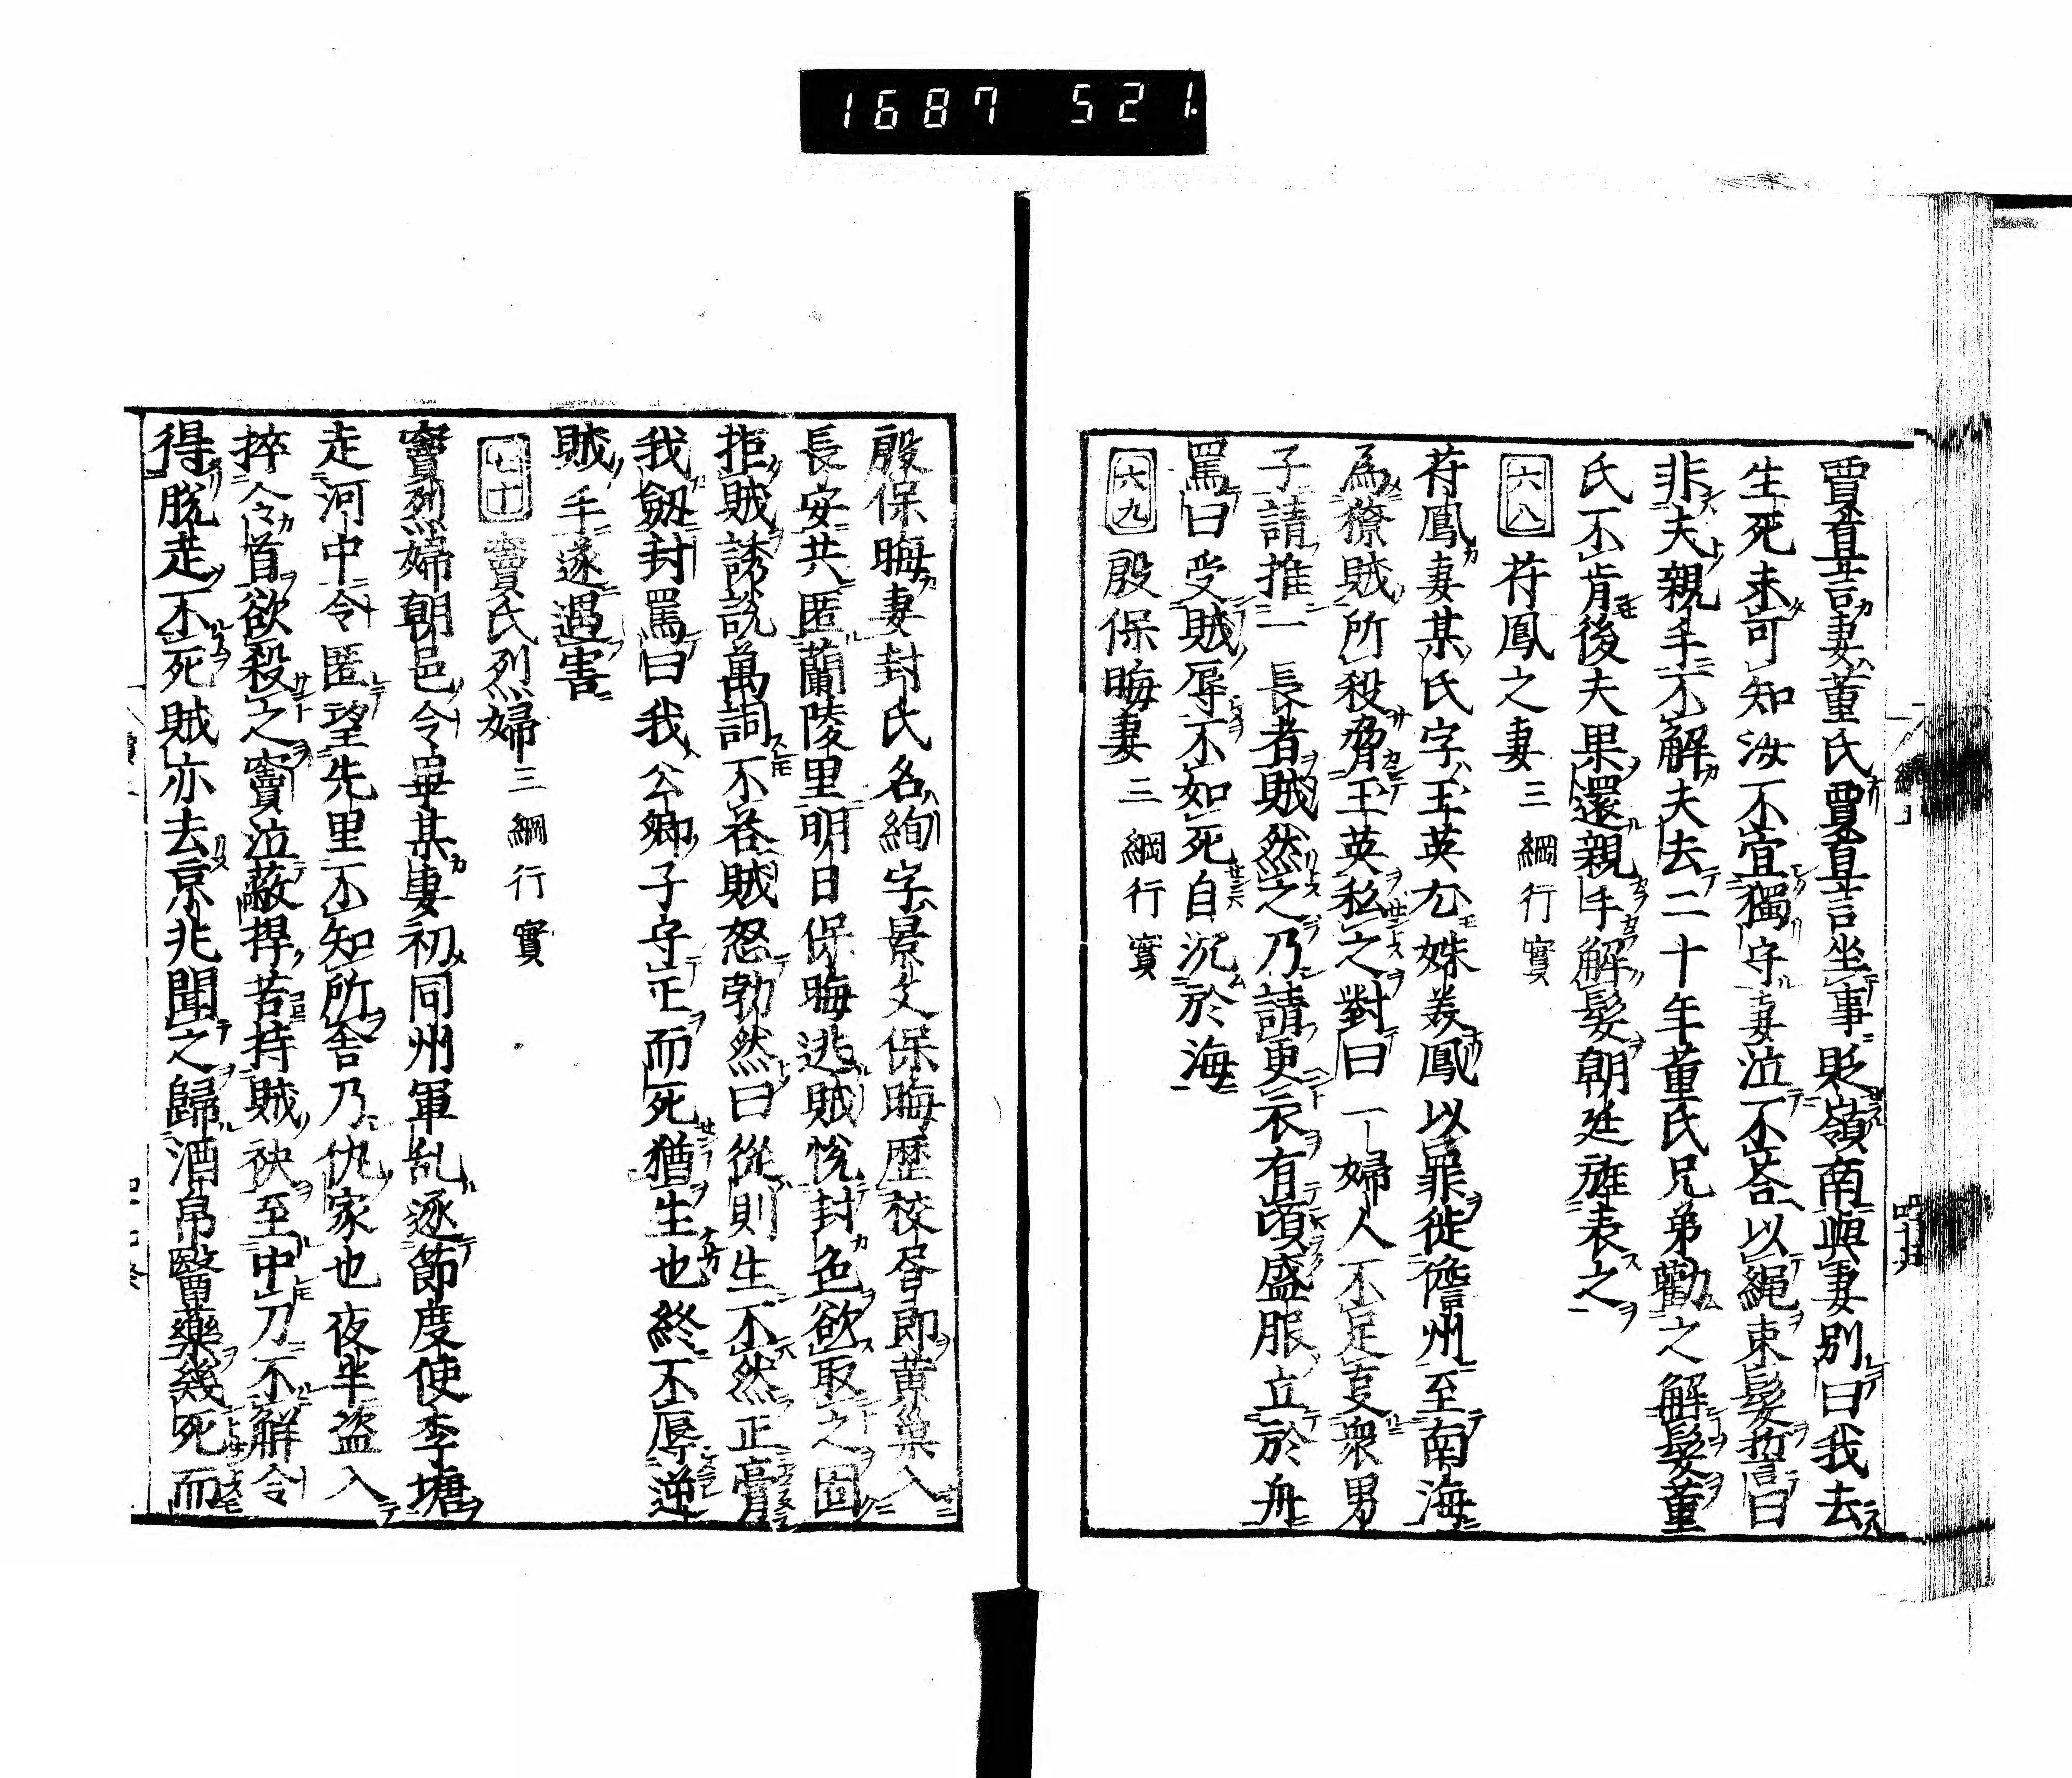 1687 521
賈直言妻董氏賈直言坐事貶嶺南與妻別曰我去
生死未可知汝不宜獨守妻泣不荅以繩束髮誓曰
非夫親手不解夫去二十年董氏兄弟勸之解髮董
氏不肯後夫果還親手解髮朝廷旌表之
六八 苻鳳之妻 三綱行實
苻鳳妻某氏字玉英尤姝美鳳以罪徙儋州至南海
為獠賊所殺脅玉英私之對曰一婦人不足支眾男
子請推一長者賊然之乃請更衣有頃盛服立於舟
罵曰受賊辱不如死自沉於海
六九 殷保晦妻 三綱行實
殷保晦妻封氏名絢字景文保晦歷校書郎黄巢入
長安共匿蘭陵里明日保晦逃賊悅封色欲取之固
拒賊誘說萬詞不荅賊怒勃然曰從則生不然正膏
我劔封罵曰我公卿子守正而死猶生也終不辱逆
賊手遂遇害
七十 竇氏烈婦 三綱行實
竇烈婦朝邑令畢某妻初同州軍乱逐節度使李瑭
走河中令匿望先里不知所舎乃仇家也夜半盗入
捽令首欲殺之竇泣蔽捍苦持賊袂至中刀不解令
得脫走不死賊亦去京兆聞之歸酒帛醫藥幾死而